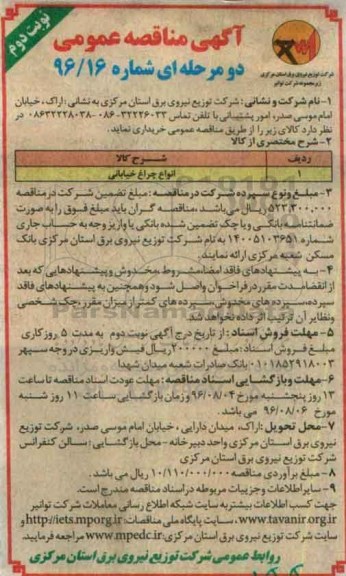 نوبت دوم
آگهی مناقصه عمومی
دو مرحله ای شماره ۹۶/۱۶
شرکت توزیع نیروی برق استان مرکزی
زیرمجموعه شرکت توانیر
۱- نام شرکت و نشانی : شرکت توزیع نیروی برق استان مرکزی به نشانی : اراک، خیابان
امام موسی صدر، امور پشتیبانی با تلفن تماس ۳۲۲۲۶۰۳۳-۰۸۶ -۰۸۶۳۲۲۲۸۰۳۸ در
نظر دارد کالای زیر را از طریق مناقصه عمومی خریداری نماید.
۲- شرح مختصری از کالا
ردیف شرح کالا
۱ انواع چراغ خیابانی
۳- مبلغ و نوع سپرده شرکت در مناقصه : مبلغ تضمین شرکت در مناقصه
۵۲۳,۳۰۰,۰۰۰ ریال می باشد ،مناقصه گران باید مبلغ فوق را به صورت
ضمانتنامه بانکی و یا چک تضمین شده بانکی یا واریز وجه به حساب جاری
شماره ۱۴۰۰۵۱۰۳۶۵۱ به نام شرکت توزیع نیروی برق استان مرکزی بانک
مسکن شعبه مرکزی ارائه نمایند.
۴- به پیشنهادهای فاقد امضا،مشروط ،مخدوش و پیشنهادهایی که بعد
از انقضا مدت مقرر در فراخوان واصل شود و همچنین به پیشنهادهای فاقد
سپرده،سپرده های مخدوش،سپرده های کمتر از میزان مقرر ،چک شخصی
و نظایر آن ترتیب اثر داده نخواهد شد.
۵- مهلت فروش اسناد : از تاریخ درج آگهی نوبت دوم به مدت ۵ روز کاری
مبلغ فروش اسناد : مبلغ ۲۰۰۰۰۰ ریال فیش واریزی در وجه سپهر
۰۱۰۱۸۵۲۹۱۸۰۰۳ بانک صادرات شعبه میدان شهدا
۶- مهلت و بازگشایی اسناد مناقصه : مهلت عودت اسناد مناقصه تا ساعت
۱۳ روز پنجشنبه مورخ ۹۶/۰۸/۰۴ و زمان بازگشایی ساعت ۱۱ روز شنبه
مورخ ۹۶/۰۸/۰۶ می باشد .
۷- محل تحویل : اراک، میدان دارایی ، خیابان امام موسی صدر، شرکت توزیع
نیروی برق استان مرکزی واحد دبیرخانه - محل بازگشایی : سالن کنفرانس
شرکت توزیع نیروی برق استان مرکزی
۸- مبلغ برآوردی مناقصه ۱۰/۱۱۰/۰۰۰/۰۰۰ ریال می باشد .
۹- سایر اطلاعات و جزییات مربوطه در اسناد مناقصه مندرج است.
جهت کسب اطلاعات بیشتر به سایت شبکه اطلاع رسانی معاملات شرکت توانیر
www.tavanir.org.ir ، سایت پایگاه ملی مناقصات: http://iets.mporg.ir و
سایت شرکت توزیع نیروی برق استان مرکزی: www.mpedc.ir مراجعه فرمایید.
روابط عمومی شرکت توزیع نیروی برق استان مرکزی